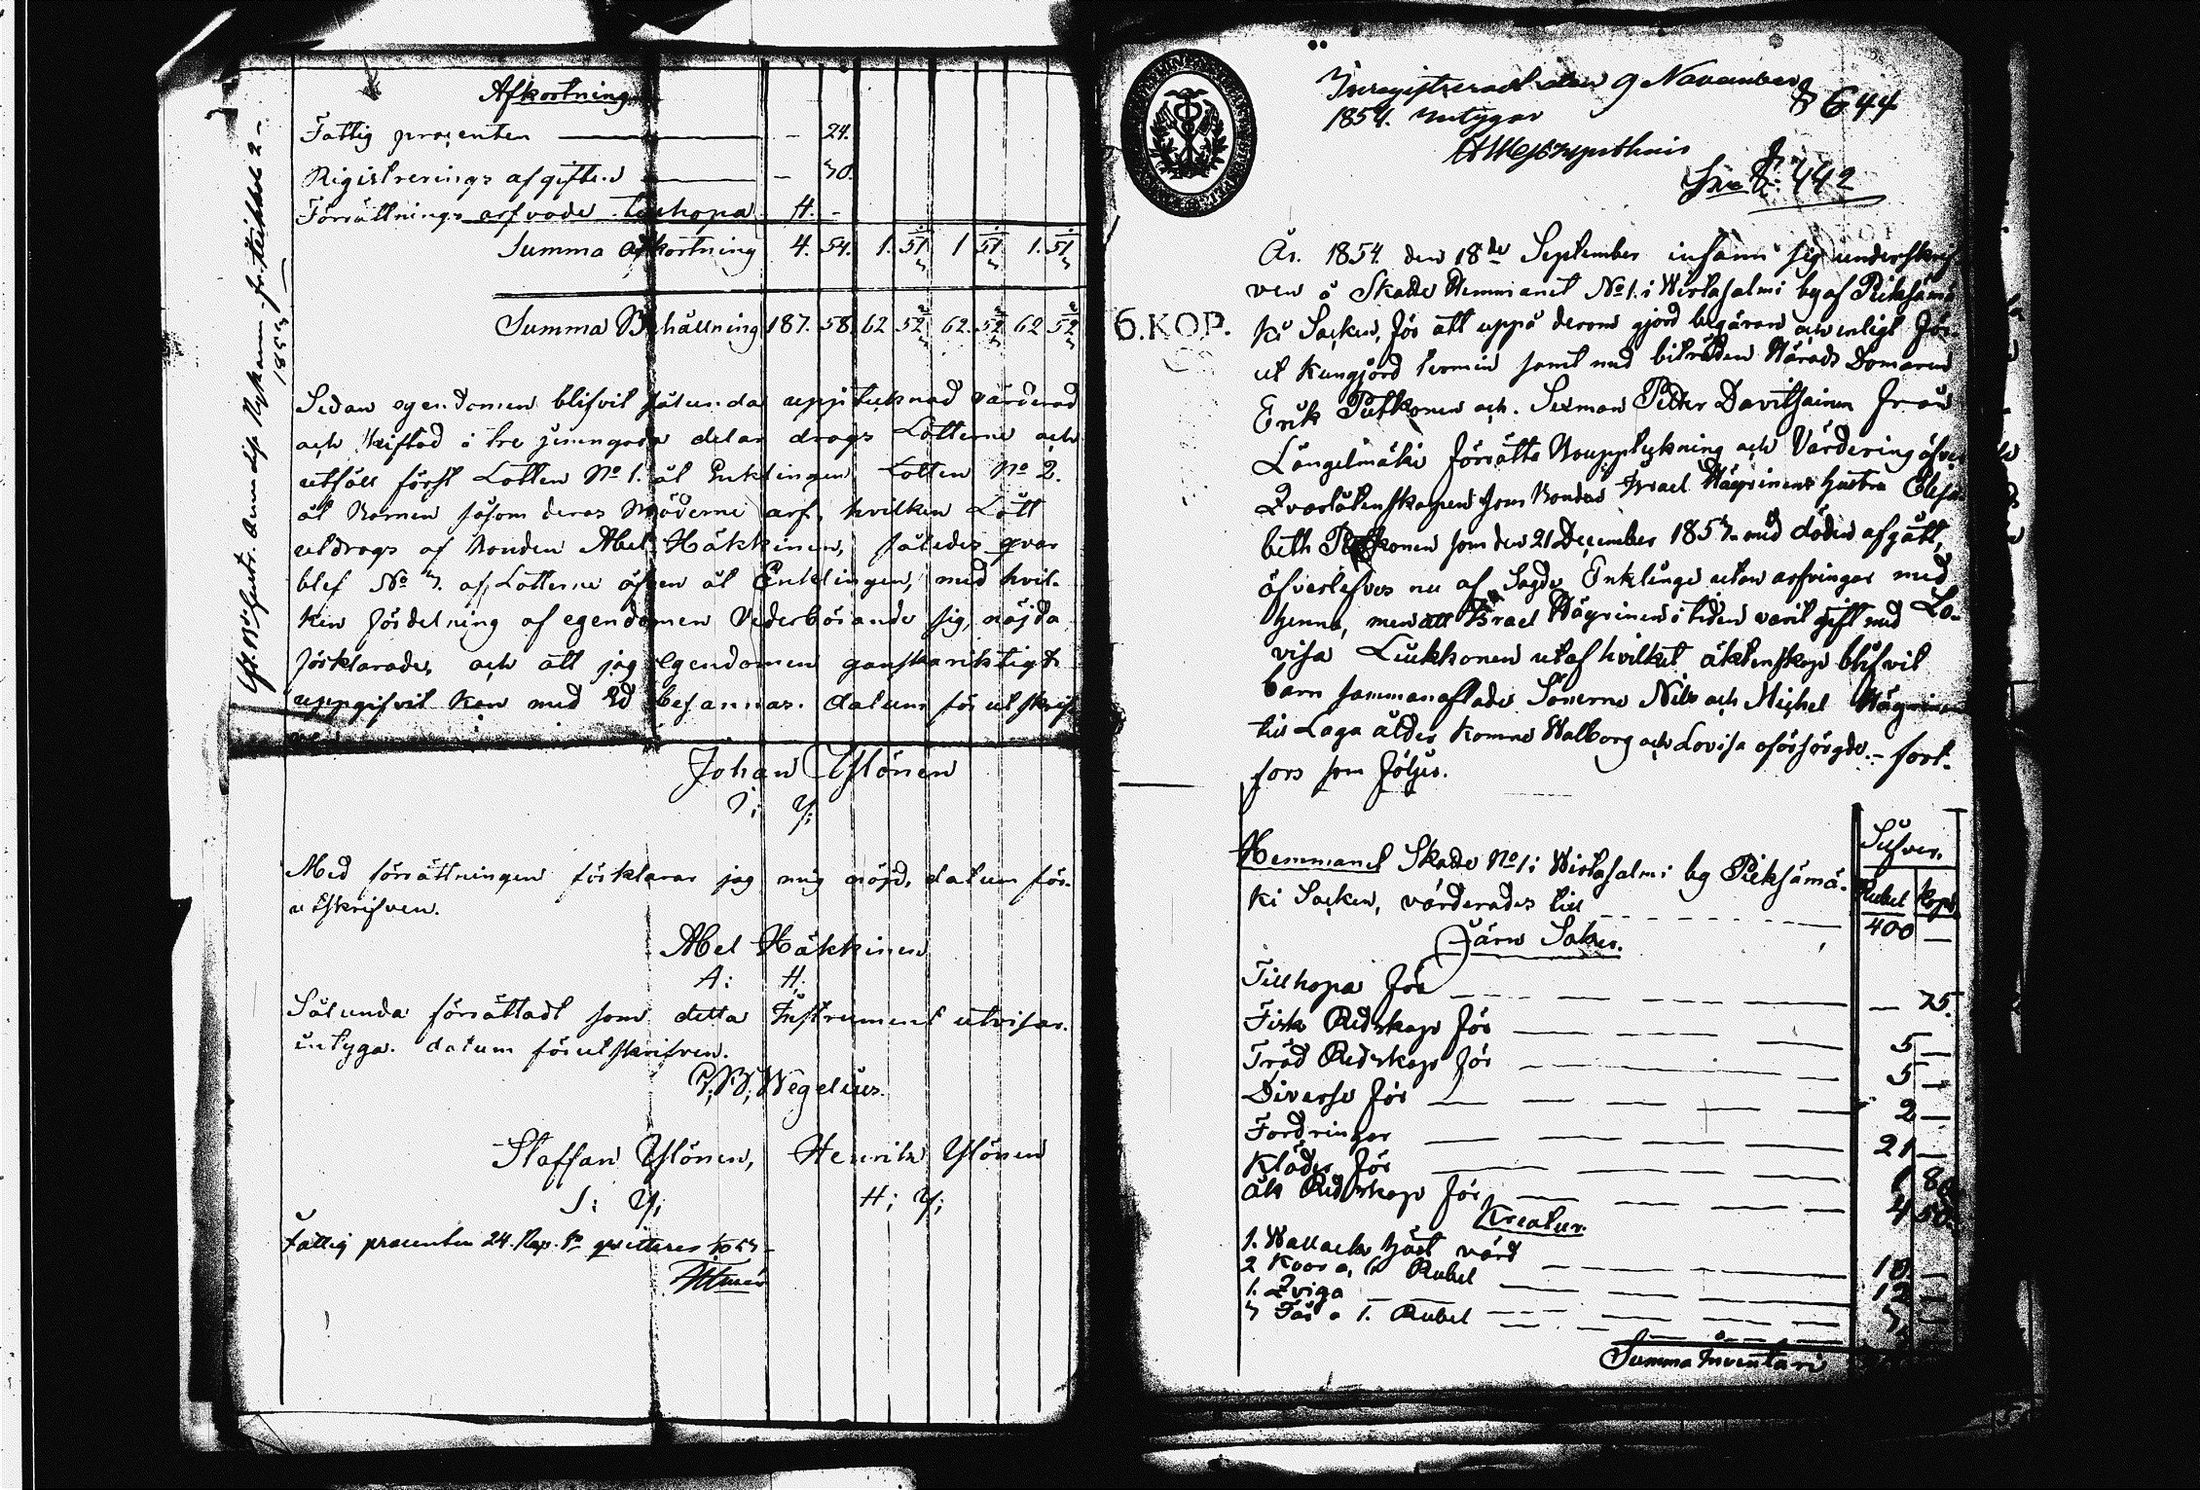 Afkortning
Fattig procenten — 24.
Rigistrerings afgiften — 30.
Försättnings arfvode tillhopa 4. -
Summa afkortning 4. 54. 1. 51 1 51 1. 51
Summa Behållning 187. 58 62 52 62. 52 62 52
Sedan egendomen blifvit sålunda uppteknad värderad
och skiftad i tre jemngoda delar drogs Lotterne och
utföll först Lotten No 1. åt Enklingen, Lotten No 2.
åt Barnen såsom deras Möderne arf, hvilken Lott
utdrogs af Bonden Abel Häkkinen, således qvar
blef No 3. af Lotterne äfven åt Enklingen, med hvil-
ken fördelning af egendomen Vederbörande sig nöjda
förklarade, och att jag egendomen ganska riktigt
uppgifvit kan med Ed besannas. datum förutskrif
Johan Ylönen
J: Y:
Med försättningen förklarar jag mig nöjd, datum för-
utskrifven.
Abel Häkkinen
A: H:
Sålunda försättadt som detta Instrument utvisar.
intyga. datum förutskrifven.
Wegelius.
Staffan Ylönen, Henrik Ylönen
S: Y; H; Y;
Fattig procenten 24. Kop. Sr qvitteras
1854
Inregistrerad den 9 November
1854. intygar
644
442
6.KOP.
År. 1854 den 18de September infann sig underskrif-
ven å Skatte Hemmanet No 1. i Wirtasalmi by af Pieksämä
ki Socken, för att uppå derom gjord begäran och enligt för-
ut kungjord termin samt med biträden Härads Domaren
Erik Putkonen och Sexman Petter Davitsainen från
Längelmäki förrätta Bouppteckning och Värdering öfver
Qvarlåtenskapen som Bonden Israel Häyrinens hustru Elisa-
beth konen som den 21 December 1853 med döden afgått,
öfverlefves nu af Sagde Enklinge utan arfvingar med
henne, men Israel Häyrinen i tiden varit gift med Lo-
visa Liukkonen utaf hvilket äktenskap blifvit
barn sammanaflade Sönerne Nils och Michel Häyrinen
till Laga ålder komne Walborg och Lovisa oförsörgde. - fort-
fors som följer.
Silfver.
Rubel Kop.
Hemmanet Skatte No 1 i Wirtasalmi by Pieksämä-
ki Socken, värderades till 400 —
Järn Saker.
Tillhopa för — 75.
Fisk Redskap för 5 —
Träd Redskap för 5 —
Diverse för 2 —
Fordringar 21 —
Kläder för 1 80
Åk Redskap för 4 50.
Kreatur.
1. Wallack häst värd 10 —
2 Koor a, 6 Rubel 12 —
1. Qviga
3 Får a 1. Rubel 3
Summa Inventari